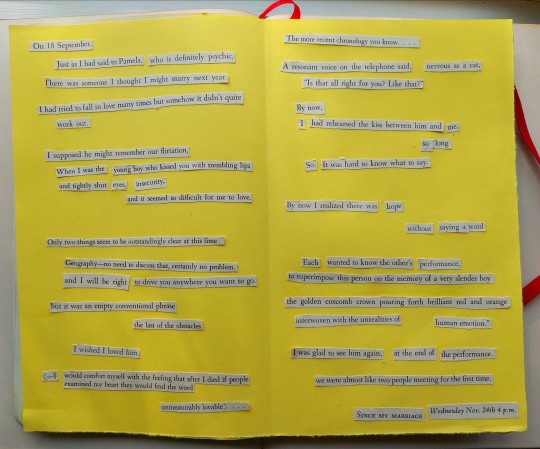 On 18 September.
Just as I had said to Pamela, who is definitely psychic,
There was someone I thought I might marry next year
I had tried to fall in love many times but somehow it didn't quite
work out.
I supposed he might remember our flirtation,
When I was the young boy who kissed you with trembling lips
and tightly shut eyes, insecurity.
and it seemed so difficult for me to love.
Only two things seem to be outstandingly clear at this time
Geography—no need to discuss that, certainly no problem.
and I will be right to drive you anywhere you want to go.
but it was an empty conventional phrase
the last of the obstacles
I wished I loved him.
(—I would comfort myself with the feeling that after I died if people
examined my heart they would find the word
unmeasurably lovable) . . . .
The more recent chronology you know. . . .
A resonant voice on the telephone said, nervous as a cat,
"Is that all right for you? Like that?"
By now,
I had rehearsed the kiss between him and me
so long
So. It was hard to know what to say.
By now I realized there was hope
without saying a word
Each wanted to know the other's performance.
to superimpose this person on the memory of a very slender boy
the golden coxcomb crown pouring forth brilliant red and orange
interwoven with the unrealities of human emotion."
I was glad to see him again, at the end of the performance.
we were almost like two people meeting for the first time.
SINCE MY MARRIAGE Wednesday Nov. 24th 4 p.m.